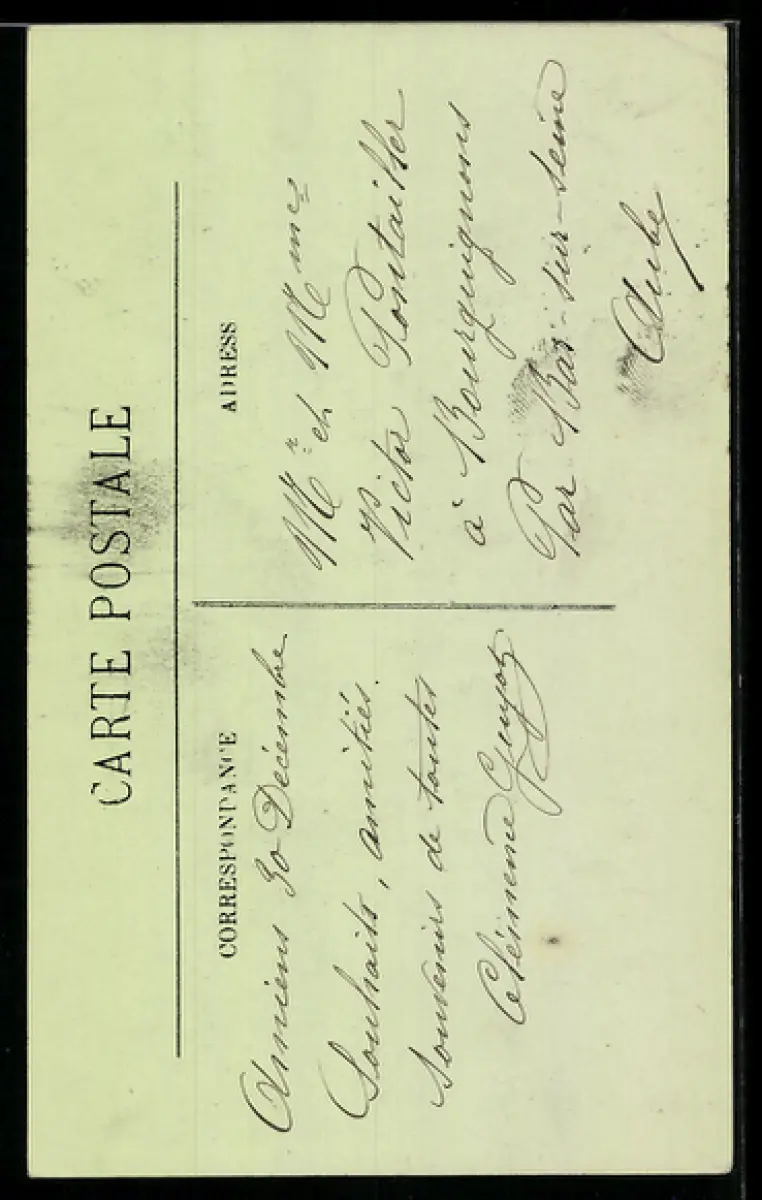 CARTE POSTALE
CORRESPONDANCE
Amiens 30 Décembre
Souhaits, amitiés.
Souvenirs de toutes
Clémence Guyot
ADRESS
Mr et Mme
Victor Pontailler
à Bourguignons
Par Bar-sur-Seine
Aube